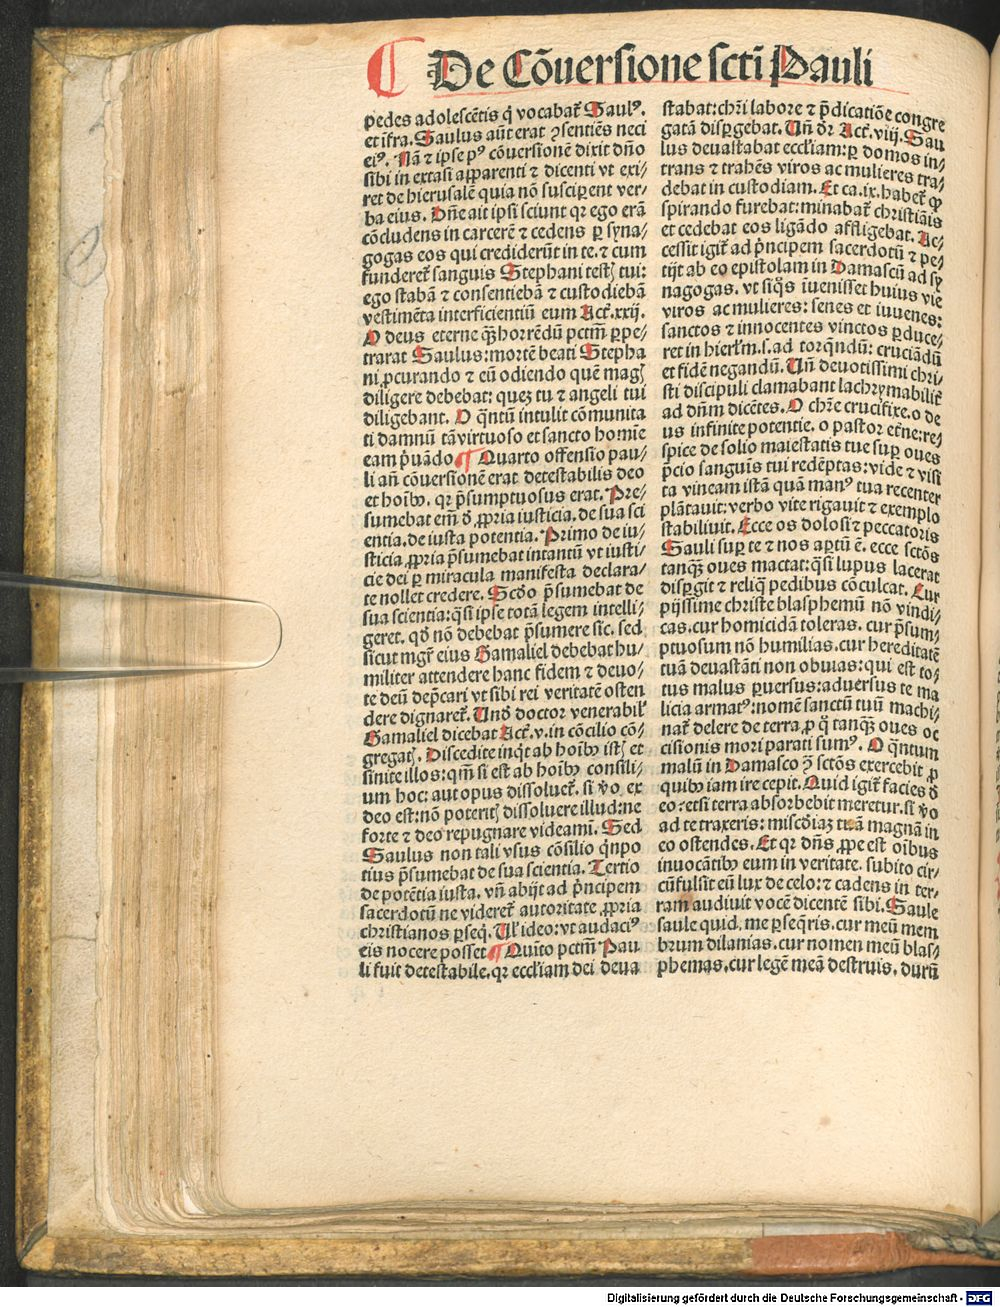 De Cõuersione sctĩ Pauli
pedes adolescẽtis q̇ vocabať Saulꝰ.
et ĩfra. Saulus aũt erat ꝯsentiẽs neci
eiꝰ. Nã ⁊ ipse pꝰ cõuersionẽ dixit dño
sibi in extasi apparenti ⁊ dicenti vt exi/
ret de hierusalẽ quia nõ susciperent ver/
ba eius. Dñe ait ipsi sciunt qꝛ ego erã
cõcludens in carcerẽ ⁊ cedens ꝑ syna/
gogas eos qui crediderũt in te. ⁊ cum
funderet̃ sanguis Stephani testꝭ tui:
ego stabã ⁊ consentiebã ⁊ custodiebã
vestimẽta interficientiũ eum Act̃. xxij.
O deus eterne q̃ꝫ horrẽdũ pctm̃ ꝑpe/
trarat Saulus: mortẽ beati Stepha
ni ꝓcurando ⁊ eũ odiendo quẽ magꝭ
diligere debebat: queꝫ tu ⁊ angeli tui
diligebant. O q̃ntũ intulit cõmunita
ti damnũ tã virtuoso et sancto homĩe
eam p̃uãdo ¶ Quarto offensio pau/
li añ cõuersionẽ erat detestabilis deo
et hoĩbꝰ. qꝛ p̃sumptuosus erat. Pre/
sumebat em̃ đ ꝓpria iusticia. de sua sci
entia. de iusta potentia. Primo de iu/
sticia ꝓpria p̃sumebat intantũ vt iusti/
cie dei ꝑ miracula manifesta declara/
te nollet credere. Scđo p̃sumebat de
sua scientia: q̃si ipse totã legem intelli/
geret. qđ nõ debebat p̃sumere sic. sed
sicut mgr̃ eius Gamaliel debebat hu/
militer attendere hanc fidem ⁊ deuo/
te deũ dep̃cari vt sibi rei veritatẽ osten
dere dignaret̃. Unđ doctor venerabil̃
Gamaliel dicebat Act̃. v. in cõcilio cõ/
gregatꝭ. Discedite inq̇t ab hoĩbꝰ istꝭ et
sinite illos: qm̃ si est ab hoĩbꝰ consili/
um hoc: aut opus dissoluet̃. si ṽo ex
deo est: nõ poteritꝭ dissoluere illud: ne
forte ⁊ deo repugnare videamĩ. Sed
Saulus non tali vsus cõsilio q̇npo
tius p̃sumebat de sua scientia. Tertio
de potẽtia iusta. vñ abijt ad p̃ncipem
sacerdotũ ne videret̃ autoritate ꝓpria
christianos ꝑseq̇. Ul̃ ideo: vt audaciꝰ
eis nocere posset ¶ Quĩto pctm̃ Pau
li fuit detestabile. qꝛ eccl̃iam dei deua
stabat: chr̃i labore ⁊ p̃dicatiõe congre
gatã disꝑgebat. Uñ đr Act̃. viij. Sau
lus deuastabat eccl̃iam: ꝑ domos in/
trans ⁊ trahẽs viros ac mulieres tra/
debat in custodiam. Et ca. ix. habet̃ ꝙ
spirando furebat: minabat̃ christiãis
et cedebat eos ligãdo affligebat. Ac/
cessit igit̃ ad p̃ncipem sacerdotũ ⁊ pe/
tijt ab eo epistolam in Damascũ ad sy
nagogas. vt siq̇s iuenisset huius vie
viros ac mulieres: senes et iuuenes:
sanctos ⁊ innocentes vinctos ꝑduce/
ret in hierl̃m. s. ad torq̃ndũ: cruciãdũ
et fidẽ negandũ. Uñ deuotissimi chri/
sti discipuli clamabant lachrymabilit̃
ad dñm dicẽtes. O chr̃e crucifixe. o de
us infinite potentie. o pastor et̃ne: re/
spice de solio maiestatis tue suꝑ oues
p̃cio sanguĩs tui redẽptas: vide ⁊ visi
ta vineam istã quã manꝰ tua recenter
plãtauit: verbo vite rigauit ⁊ exemplo
stabiliuit. Ecce os dolosi ⁊ peccatoris
Sauli suꝑ te ⁊ nos aꝑtũ ẽ. ecce sctõs
tanq̃ꝫ oues mactat: q̃si lupus lacerat
disꝑgit ⁊ reliq̇ pedibus cõculcat. Cur
pijssime christe blasphemũ nõ vindi/
cas. cur homicidã toleras. cur p̃sum/
ptuosum nõ humilias. cur hereditatẽ
tuã deuastãti non obuias: qui est to/
tus malus ꝑuersus: aduersus te ma
licia armatꝰ: nomẽ sanctũ tuũ machi/
nat̃ delere de terra. ꝓ q̊ tanq̃ꝫ oues oc
cisionis mori parati sumꝰ. O q̃ntum
malũ in Damasco ꝯ̃ sctõs exercebit ꝓ
quibꝰ iam ire cepit. Quid igit̃ facies đ
eo: etsi terra absorbebit meretur. si ṽo
ad te traxeris: miscđiaꝫ tuã magnã in
eo ostendes. Et qꝛ dñs ꝓpe est oĩbus
inuocãtibꝰ eum in veritate. subito cir/
cũfulsit eũ lux de celo: ⁊ cadens in ter/
ram audiuit vocẽ dicentẽ sibi. Saule
saule quid me ꝑseq̃ris. cur meũ mem
brum dilanias. cur nomen meũ blas/
phemas. cur legẽ meã destruis. durũ
Digitalisierung gefördert durch die Deutsche Forschungsgemeinschaft - DFG